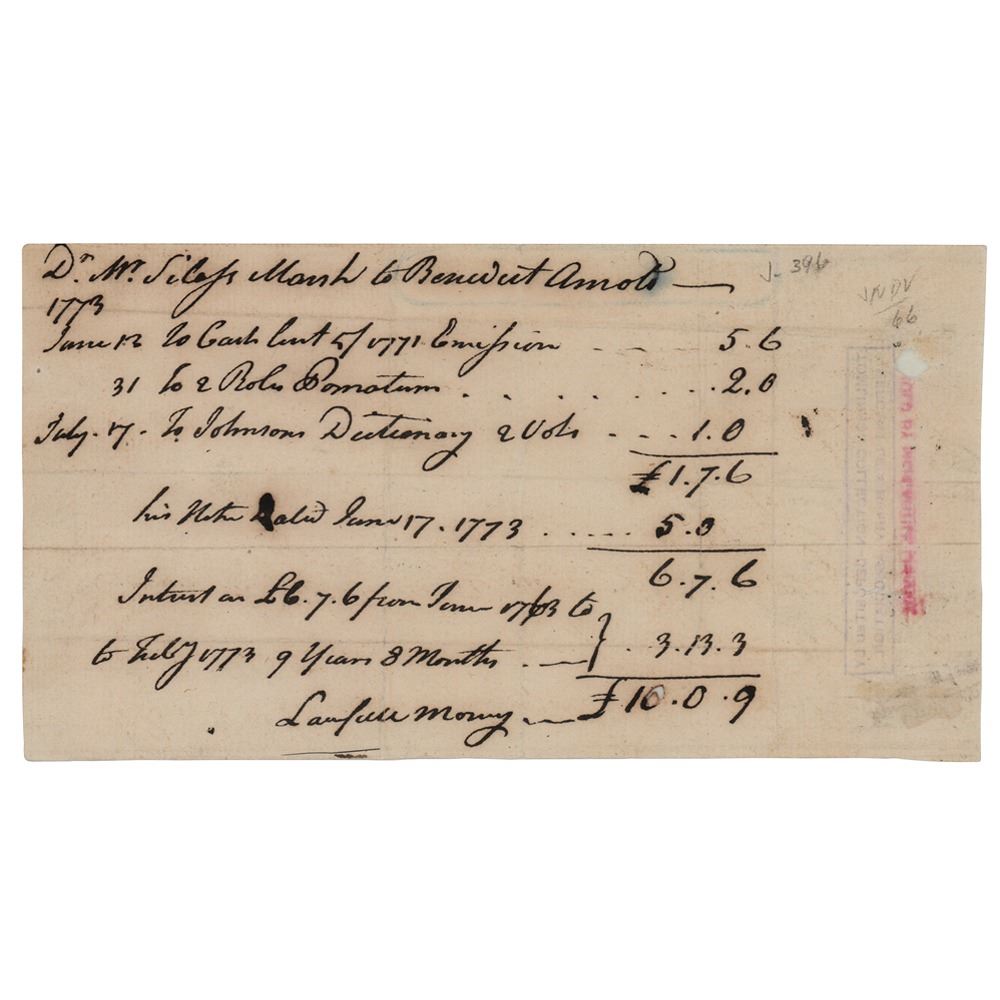 Dr. Mr. Silass Marsh to Benedict Arnold
J- 396
1773
June 12 To Cash lent of 1771 Emission - - - 5.6
31 to 2 Roles Pomatum . . . . . . . . . 2.0
July. 17. To Johnsons Dictionary 2 Vols - - - . 1.0
£1.7.6
his Note Dated June 17. 1773 . . . . . 5.0
6.7.6
Intrest on £6.7.6 from June 1763 to
to Feby 1773 9 Years 8 Months . — } . 3.13.3
Laufull Money - — £10.0.9